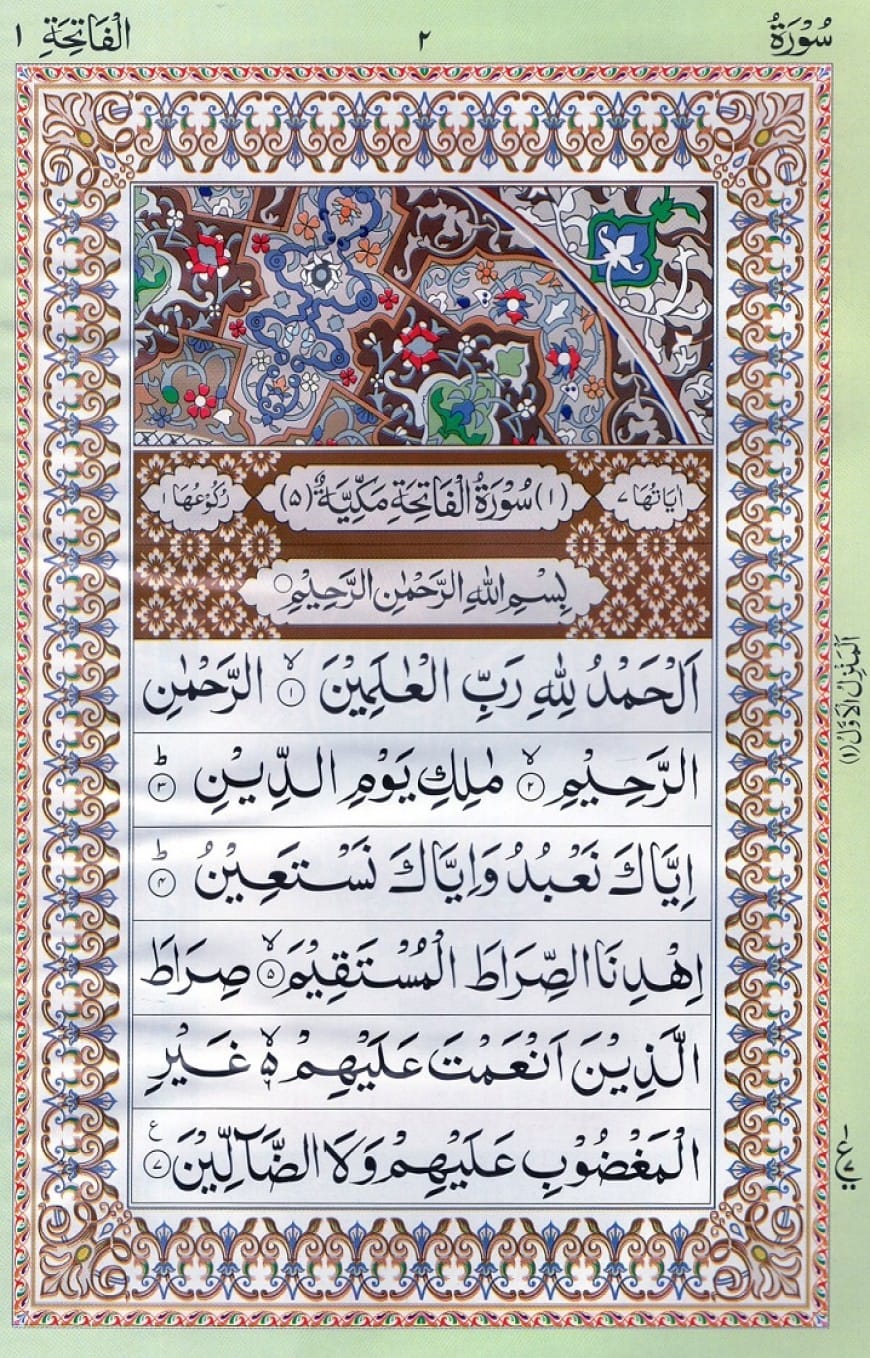 سُوْرَةُ ٢ الْفَاتِحَةِ ١
اٰيَاتُهَا ٧ (١) سُوْرَةُ الْفَاتِحَةِ مَكِّيَّةٌ (٥) رُكُوْعُهَا ١
بِسْمِ اللّٰهِ الرَّحْمٰنِ الرَّحِيْمِ
اَلْحَمْدُ لِلّٰهِ رَبِّ الْعٰلَمِيْنَ ۙ﴿١﴾ الرَّحْمٰنِ
الرَّحِيْمِ ۙ﴿٢﴾ مٰلِكِ يَوْمِ الدِّيْنِ ؕ﴿٣﴾
اِيَّاكَ نَعْبُدُ وَاِيَّاكَ نَسْتَعِيْنُ ؕ﴿٤﴾
اِهْدِنَا الصِّرَاطَ الْمُسْتَقِيْمَ ۙ﴿٥﴾ صِرَاطَ
الَّذِيْنَ اَنْعَمْتَ عَلَيْهِمْ ۙ۬ غَيْرِ
الْمَغْضُوْبِ عَلَيْهِمْ وَلَا الضَّآلِّيْنَ ﴿٧﴾ ع
اَلْمَنْزِلُ الْاَوَّلُ (١)
ع ٧